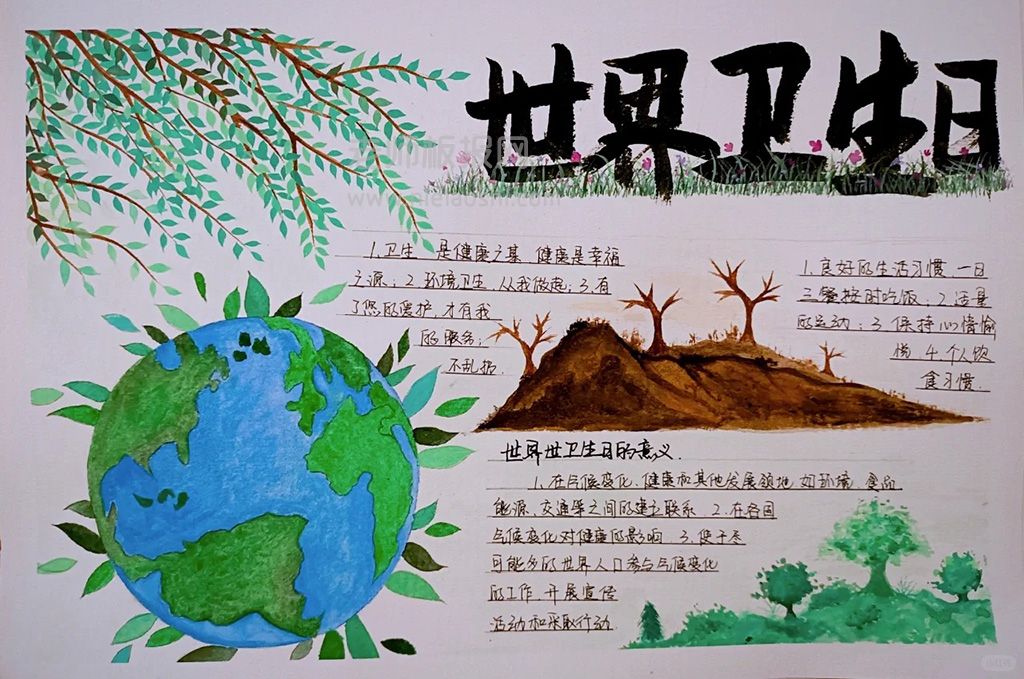 世界卫生日
1.卫生 是健康之基,健康是幸福
之源;2.环境卫生,从我做起;3.有
了您的爱护,才有我
的服务;
不乱扔.
1.良好的生活习惯 一日
三餐按时吃饭;2.适量
的运动;3.保持心情愉
悦 4.个人饮
食习惯.
世界世卫生日的意义.
1.在气候变化、健康和其他发展领地 如环境、食品
能源、交通等之间的建立联系 2.在各国
气候变化对健康的影响 3.使于尽
可能多的世界人口参与气候变化
的工作,开展宣传
活动和采取行动